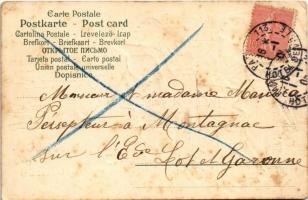 Carte Postale
Postkarte - Post card
Cartolina Postale - Levelező-Lap
Brefkort - Briefkaart - Brevkort
ОТКРЫТОЕ ПИСЬМО
Tarjeta postal - Carta postal
Union postale universelle
Dopisnice
Monsieur et madame
Persepteur à Montagnac
sur l'
Lot et Garonne